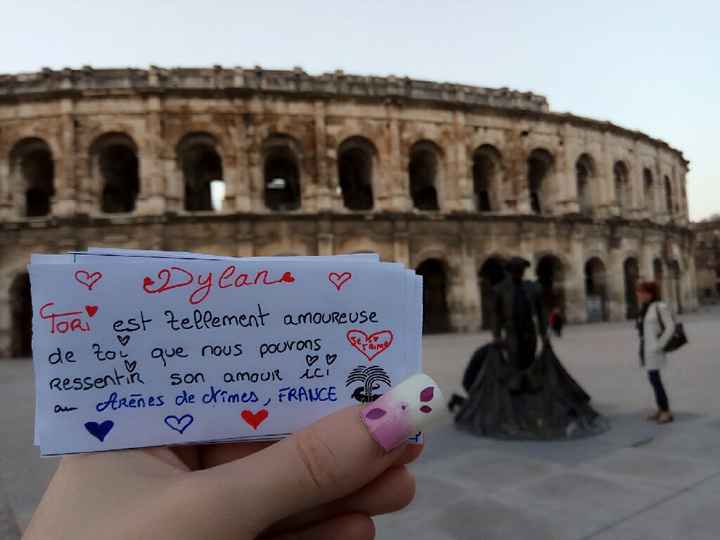 Dylan
Tori est tellement amoureuse
de toi que nous pouvons
Je t'aime
ressentir son amour ici
au Arènes de Nîmes, FRANCE